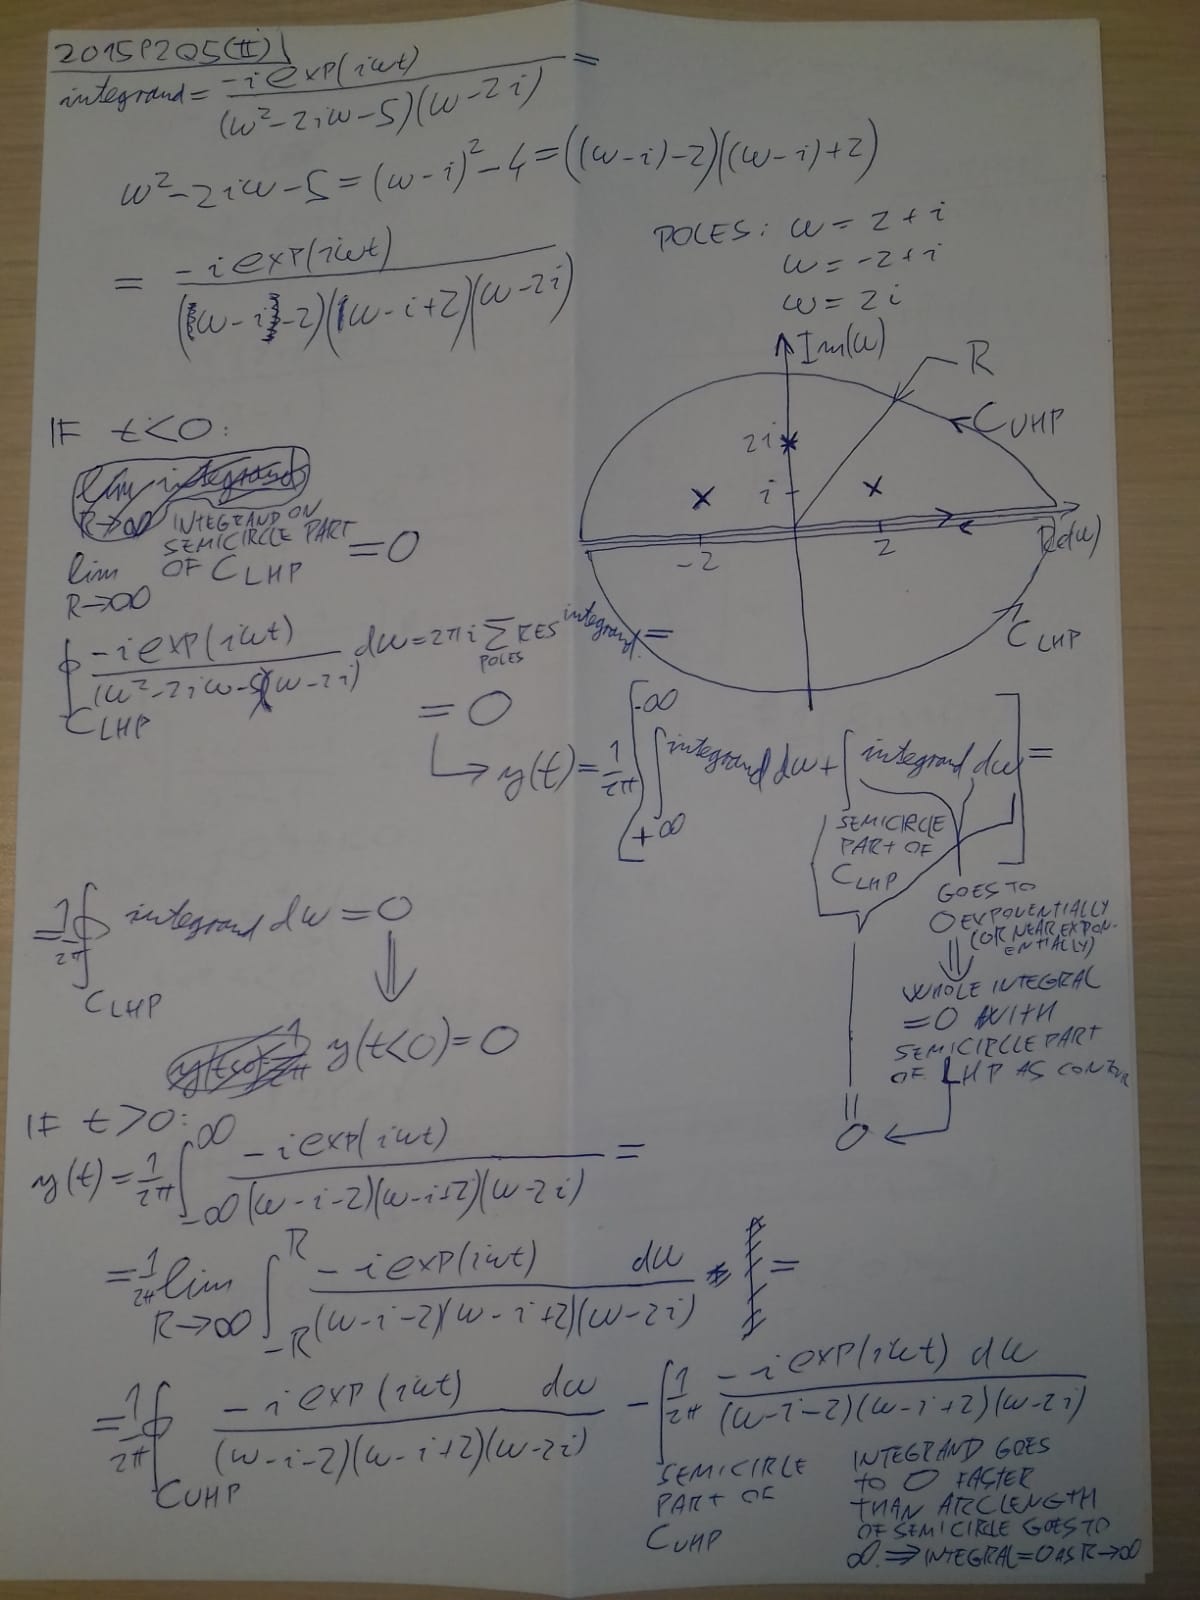 2015P2Q5(II)
integrand = -i exp(iωt) / (ω²-2iω-5)(ω-2i) =
ω²-2iω-5 = (ω-i)²-4 = ((ω-i)-2)((ω-i)+2)
= -i exp(iωt) / (ω-i-2)(ω-i+2)(ω-2i)
POLES: ω = 2+i
ω = -2+i
ω = 2i
Im(ω)
R
C UHP
2i
i
-2
2
Re(ω)
C LHP
IF t<0:
lim R→∞ INTEGRAND ON
SEMICIRCLE PART
OF C LHP = 0
∮ C LHP -i exp(iωt) / (ω²-2iω-5)(ω-2i) dω = 2πi Σ POLES RES integrand =
= 0
↳ y(t) = 1/2π [ ∫ +∞ -∞ integrand dω + ∫ integrand dω ] =
SEMICIRCLE
PART OF
C LHP
GOES TO
0 EXPONENTIALLY
(OR NEAR EXPON-
ENTIALLY)
⇓
WHOLE INTEGRAL
= 0 WITH
SEMICIRCLE PART
OF LHP AS CONTOUR
0
= 1/2π ∮ C LHP integrand dω = 0
⇓
y(t<0) = 0
IF t>0:
y(t) = 1/2π ∫ -∞ ∞ -i exp(iωt) / (ω-i-2)(ω-i+2)(ω-2i) =
= 1/2π lim R→∞ ∫ -R R -i exp(iωt) dω / (ω-i-2)(ω-i+2)(ω-2i) =
= 1/2π ∮ C UHP -i exp(iωt) dω / (ω-i-2)(ω-i+2)(ω-2i) - ∫ 1/2π -i exp(iωt) dω / (ω-i-2)(ω-i+2)(ω-2i)
SEMICIRLE
PART OF
C UHP
INTEGRAND GOES
TO 0 FASTER
THAN ARCLENGTH
OF SEMICIRCLE GOES TO
∞. ⇒ INTEGRAL=0 AS R→∞